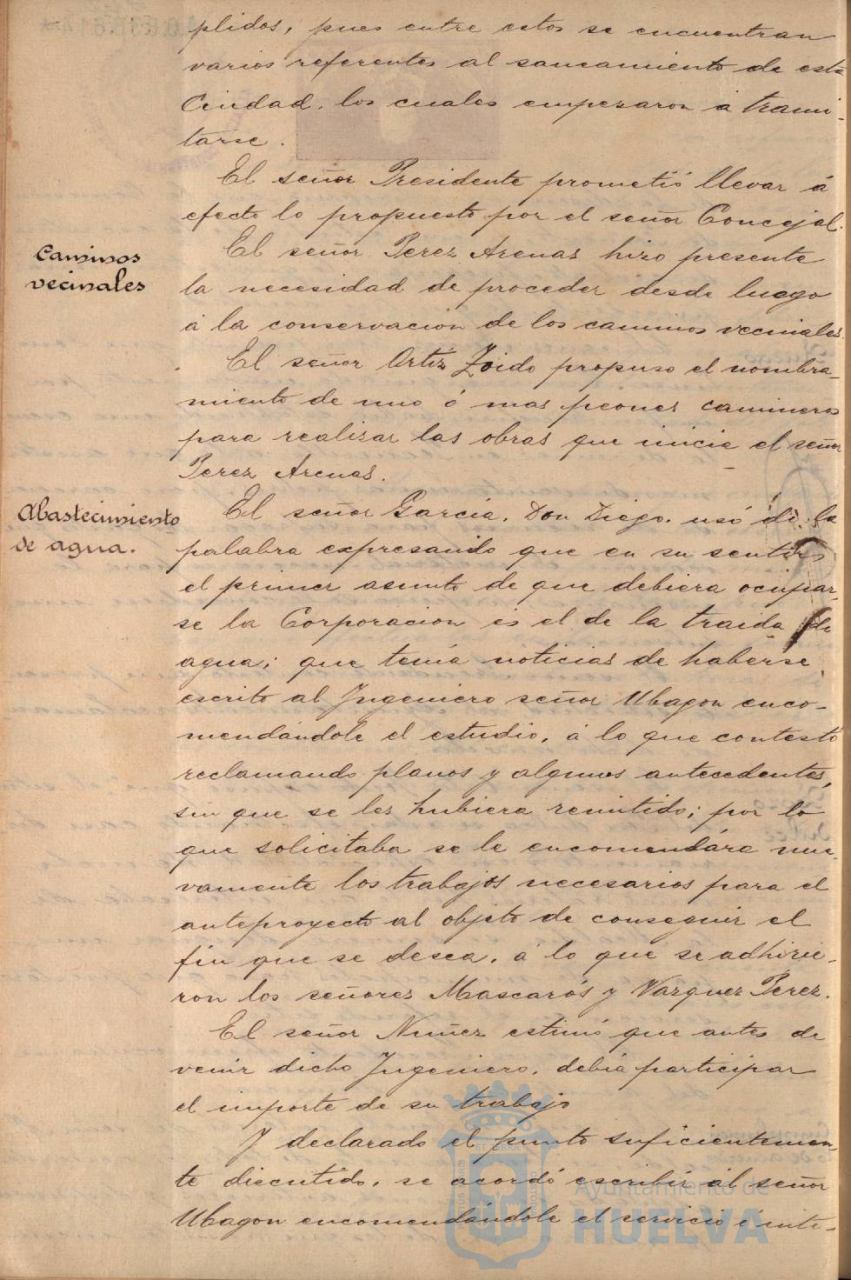 plidos, pues entre estos se encuentran
varios referentes al saneamiento de esta
Ciudad, los cuales empezaron á trami-
tarse.
El señor Presidente prometió llevar á
efecto lo propuesto por el señor Concejal.
Caminos
vecinales
El señor Perez Arenas hizo presente
la necesidad de proceder desde luego
á la conservacion de los caminos vecinales.
El señor Ortiz Zoido propuso el nombra-
miento de uno ó mas peones camineros
para realizar las obras que inicie el señor
Perez Arenas.
Abastecimiento
de agua.
El señor Garcia, Don Diego, usó de la
palabra expresando que en su sentir
el primer asunto de que debiera ocupar-
se la Corporacion es el de la traida de
agua; que tenia noticias de haberse
escrito al Ingeniero señor Ubagon enco-
mendándole el estudio, á lo que contestó
reclamando planos y algunos antecedentes,
sin que se les hubiera remitido; por lo
que solicitaba se le encomendára nue-
vamente los trabajos necesarios para el
anteproyecto al objeto de conseguir el
fin que se desea, á lo que se adhirie-
ron los señores Mascarós y Vazquez Perez.
El señor Nuñez estimó que antes de
venir dicho Ingeniero, debia participar
el importe de su trabajo
Y declarado el punto suficientemen-
te discutido, se acordó escribir al señor
Ubagon encomendándole el servicio é inte-
Ayuntamiento de
HUELVA